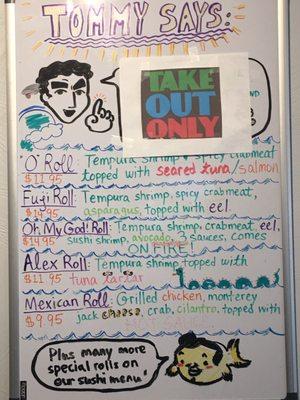 TOMMY SAYS:
TAKE
OUT
ONLY
"O" Roll: Tempura shrimp & spicy crabmeat
$11.95 topped with seared tuna/salmon
Fuji Roll: Tempura shrimp, spicy crabmeat,
$14.95 asparagus, topped with eel.
Oh, My God! Roll: Tempura shrimp, crabmeat, eel,
$14.95 sushi shrimp, avocado, 3 sauces, comes
ON FIRE!
Alex Roll: Tempura shrimp topped with
$11.95 tuna tartar
Mexican Roll: Grilled chicken, monterey
$9.95 jack cheese, crab, cilantro, topped with
Plus many more
special rolls on
our sushi menu!